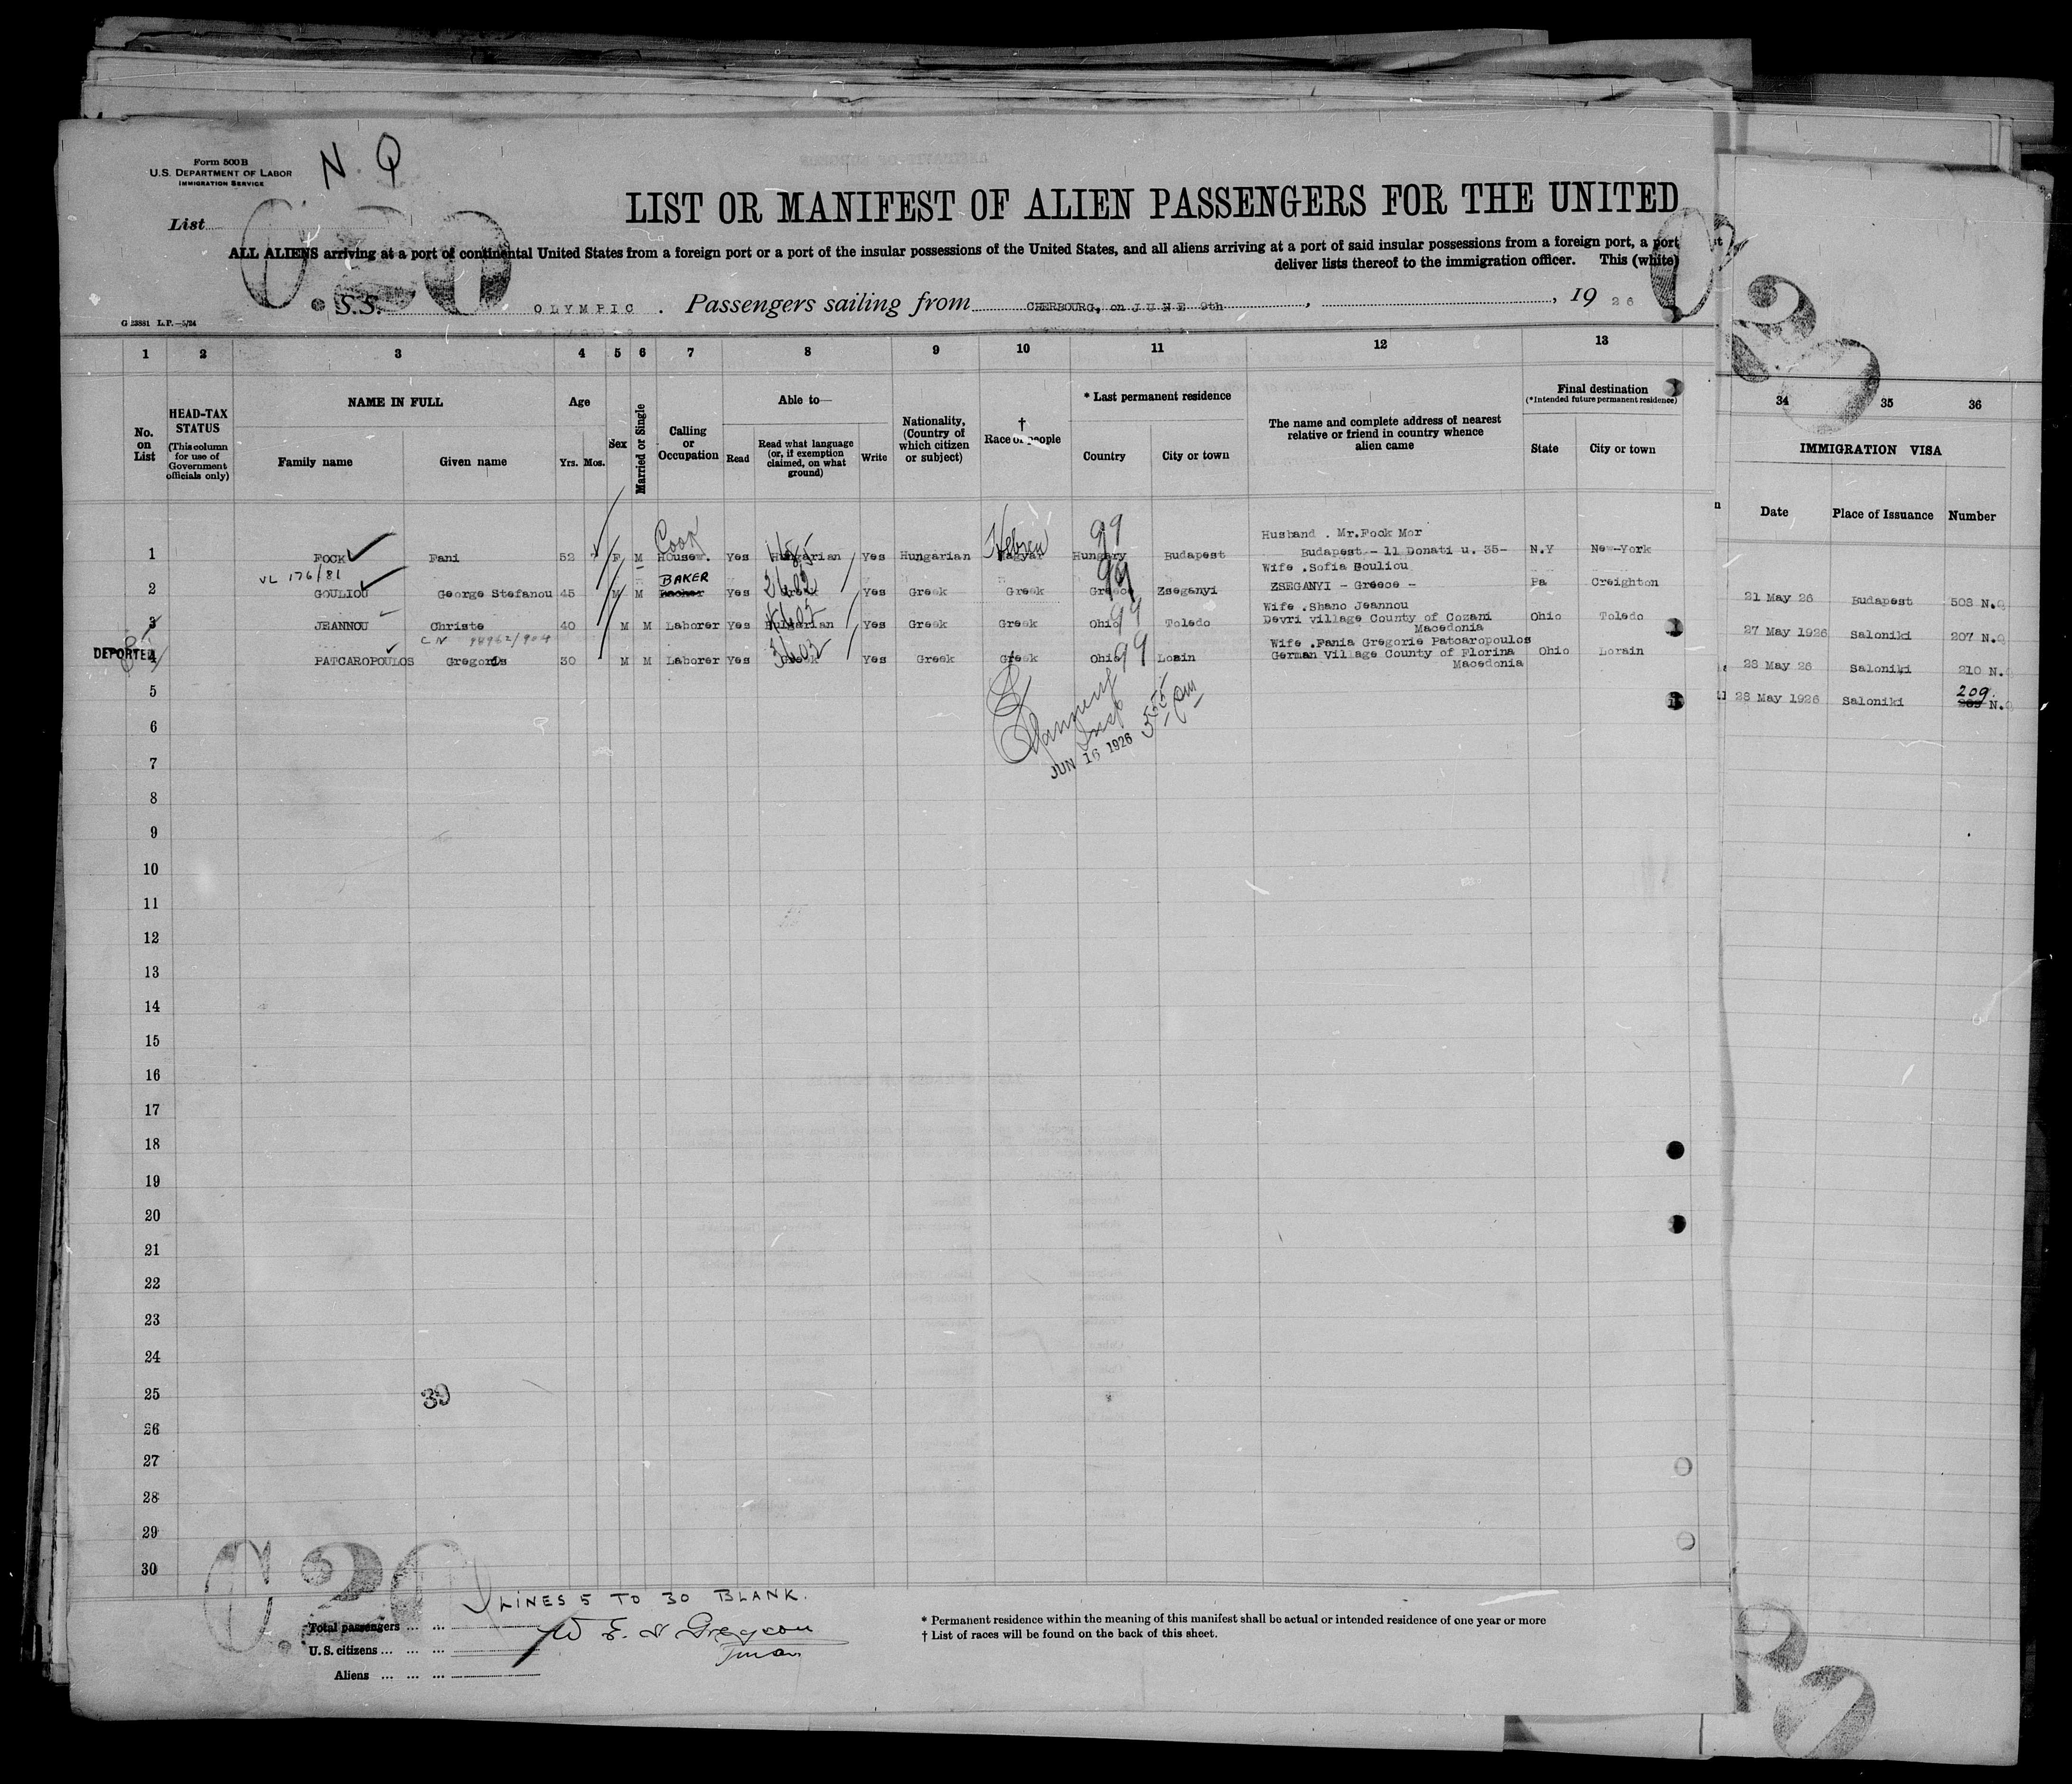 Form 500 B
U.S. DEPARTMENT OF LABOR
IMMIGRATION SERVICE
N. Q
List
LIST OR MANIFEST OF ALIEN PASSENGERS FOR THE UNITED
ALL ALIENS arriving at a port of continental United States from a foreign port or a port of the insular possessions of the United States, and all aliens arriving at a port of said insular possessions from a foreign port, a port
deliver lists thereof to the immigration officer. This (white)
S.S. OLYMPIC. Passengers sailing from CHERBOURG, on JUNE 9th, , 19 26
G 23881 L.P.—5/24
1 2 3 4 5 6 7 8 9 10 11 12 13
No. on List
HEAD-TAX STATUS (This column for use of Government officials only)
NAME IN FULL
Family name Given name
Age
Yrs. Mos.
Sex
Married or Single
Calling or Occupation
Able to—
Read
Read what language (or, if exemption claimed, on what ground)
Write
Nationality, (Country of which citizen or subject)
† Race or people
* Last permanent residence
Country City or town
The name and complete address of nearest relative or friend in country whence alien came
Final destination
(*Intended future permanent residence)
State City or town
34 35 36
IMMIGRATION VISA
Date Place of Issuance Number
Cook Hebrew 99
Husband . Mr.Fock Mor
1 FOCK Fani 52 F M Housew. Yes Hungarian Yes Hungarian Magyar Hungary Budapest Budapest - 11 Donati u. 35- N.Y New-York
VL 176/81
BAKER
Wife .Sofia Gouliou
2 GOULIOU George Stefanou 45 M M Yes Greek Yes Greek Greek Greece Zseganyi ZSEGANYI - Greece - Pa Creighton
Wife .Shano Jeannou
3 JEANNOU Christe 40 M M Laborer Yes Bulgarian Yes Greek Greek Ohio 99 Toledo Devri village County of Cozani Ohio Toledo
Macedonia
Wife .Fania Gregorie Patcaropoulos
DEPORTED
4 PATCAROPOULOS Gregoris 30 M M Laborer Yes Greek Yes Greek Greek Ohio 99 Lorain German Village County of Florina Ohio Lorain
Macedonia
21 May 26 Budapest 508 N.Q
27 May 1926 Saloniki 207 N.Q
28 May 26 Saloniki 210 N.Q
209.
28 May 1926 Saloniki N.Q
JUN 16 1926
555 pm
5
6
7
8
9
10
11
12
13
14
15
16
17
18
19
20
21
22
23
24
25
39
26
27
28
29
30
C.20
LINES 5 TO 30 BLANK.
Total passengers ... ...
U.S. citizens ... ... ...
Aliens ... ... ...
* Permanent residence within the meaning of this manifest shall be actual or intended residence of one year or more
† List of races will be found on the back of this sheet.